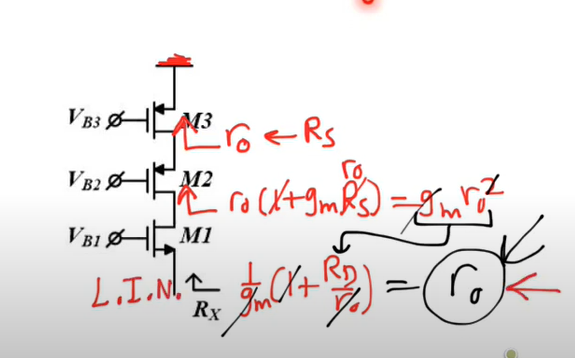 V_B3 M3
r_o ← R_S
V_B2 M2 r_o
r_o(1+g_mR_S) = g_mr_o²
V_B1 M1
L.I.N. R_X 1/g_m(1+R_D/r_o) = r_o